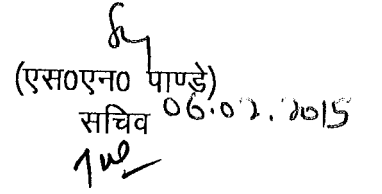 (एस0एन0 पाण्डे)
सचिव 06.02.2015